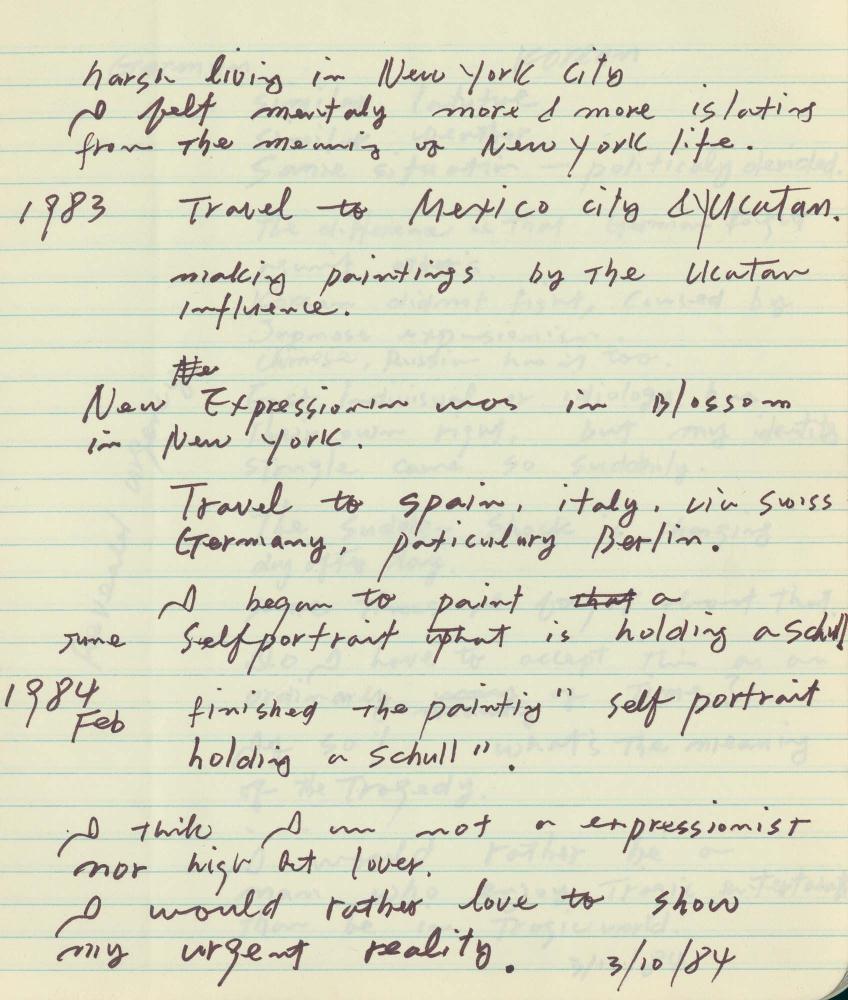 harsh living in New York City
I felt mentaly more & more islating
from the meaning of New York life.
1983 Travel to Mexico city & YUcatan.
making paintings by the Ucatan
influence.
Ne
New Expressionin was in Blossom
in New York.
Travel to spain, italy, via swiss
Germany, paticulury Berlin.
I began to paint that a
June Self portrait what is holding a Schull
1984
Feb finished the paintig " self portrait
holding a schull ".
I thik I am not a expressionist
nor high Art lover.
I would rather love to show
my urgent reality. 3/10/84